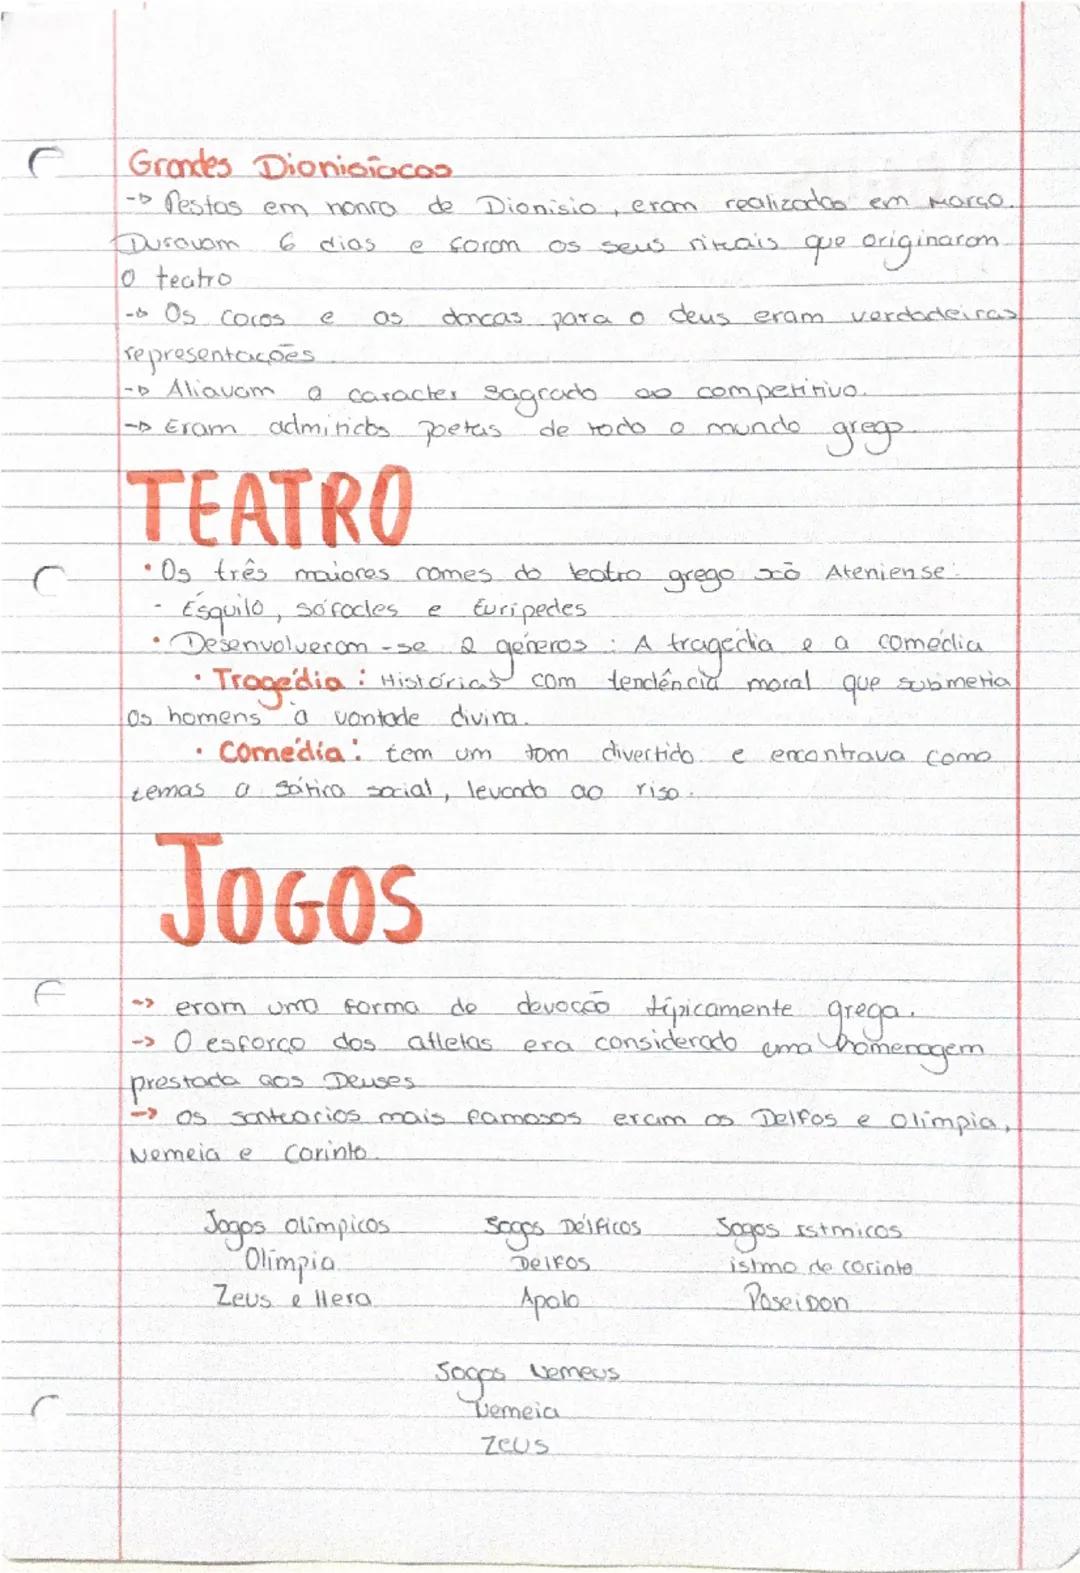 Grandes Dionisíacas
-> Festas em honra de Dionísio, eram realizadas em Março.
Duravam 6 dias e foram os seus rituais que originaram
o teatro
-> Os coros e as dancas para o deus eram verdadeiras
representações.
-> Aliavam o caracter sagrado ao competitivo.
-> Eram admitidos poetas de todo o mundo grego.
TEATRO
• Os três maiores nomes do teatro grego são Ateniense:
- Ésquilo, Sófocles e Eurípedes
• Desenvolveram-se 2 géneros: A tragédia e a comédia
• Tragédia: Histórias com tendência moral que submetia
os homens à vontade divina.
• Comédia: tem um tom divertido e encontrava como
temas a sátira social, levando ao riso.
JOGOS
-> eram uma forma de devoção típicamente grega.
-> O esforço dos atletas era considerado uma homenagem
prestada aos Deuses
-> os santuarios mais famosos eram os Delfos e Olímpia,
Nemeia e Corinto.
Jogos Olímpicos Jogos Délficos Jogos Istmicos
Olímpia Delfos istmo de corinto
Zeus e Hera Apolo Poseidon
Jogos Nemeus
Nemeia
Zeus